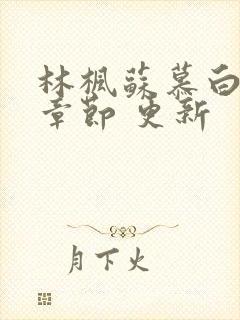 林楓蘇慕白
章節 更新
月下火